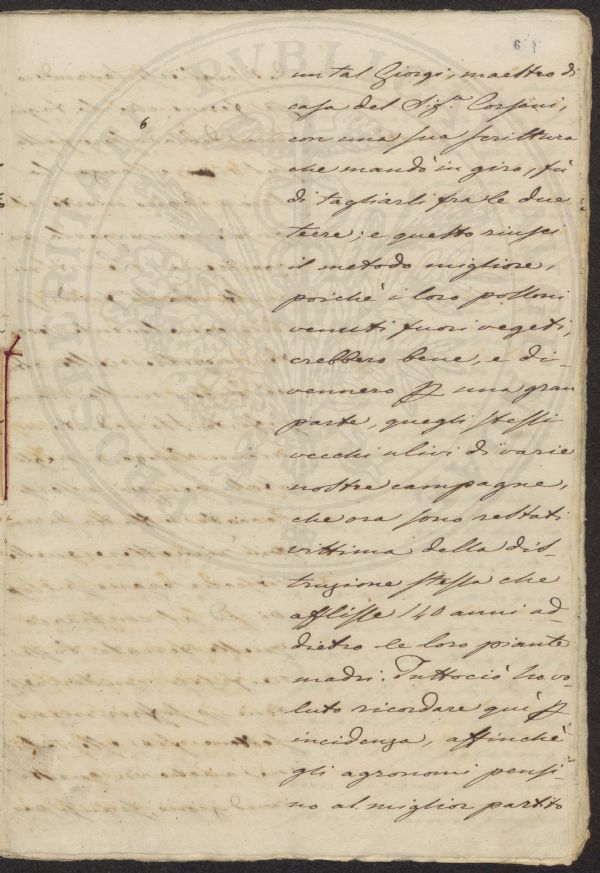 6
6
un tal Giorgi, maestro di
casa del Sig.ª Corsini,
con una sua scrittura
che mandò in giro, fù
di tagliarli fra le due
terre; e questo riuscì
il metodo migliore,
poichè i loro polloni
venuti fuori vegeti,
crebbero bene, e di-
vennero una gran
parte, quegli stessi
vecchi ulivi di varie
nostre campagne,
che ora sono restati
vittima della dis-
truzione stessa che
afflisse 140 anni ad-
dietro le loro piante
madri. Tuttociò ho vo-
luto ricordare quì
incidenza, affinchè
gli agronomi pensi-
no al miglior partito